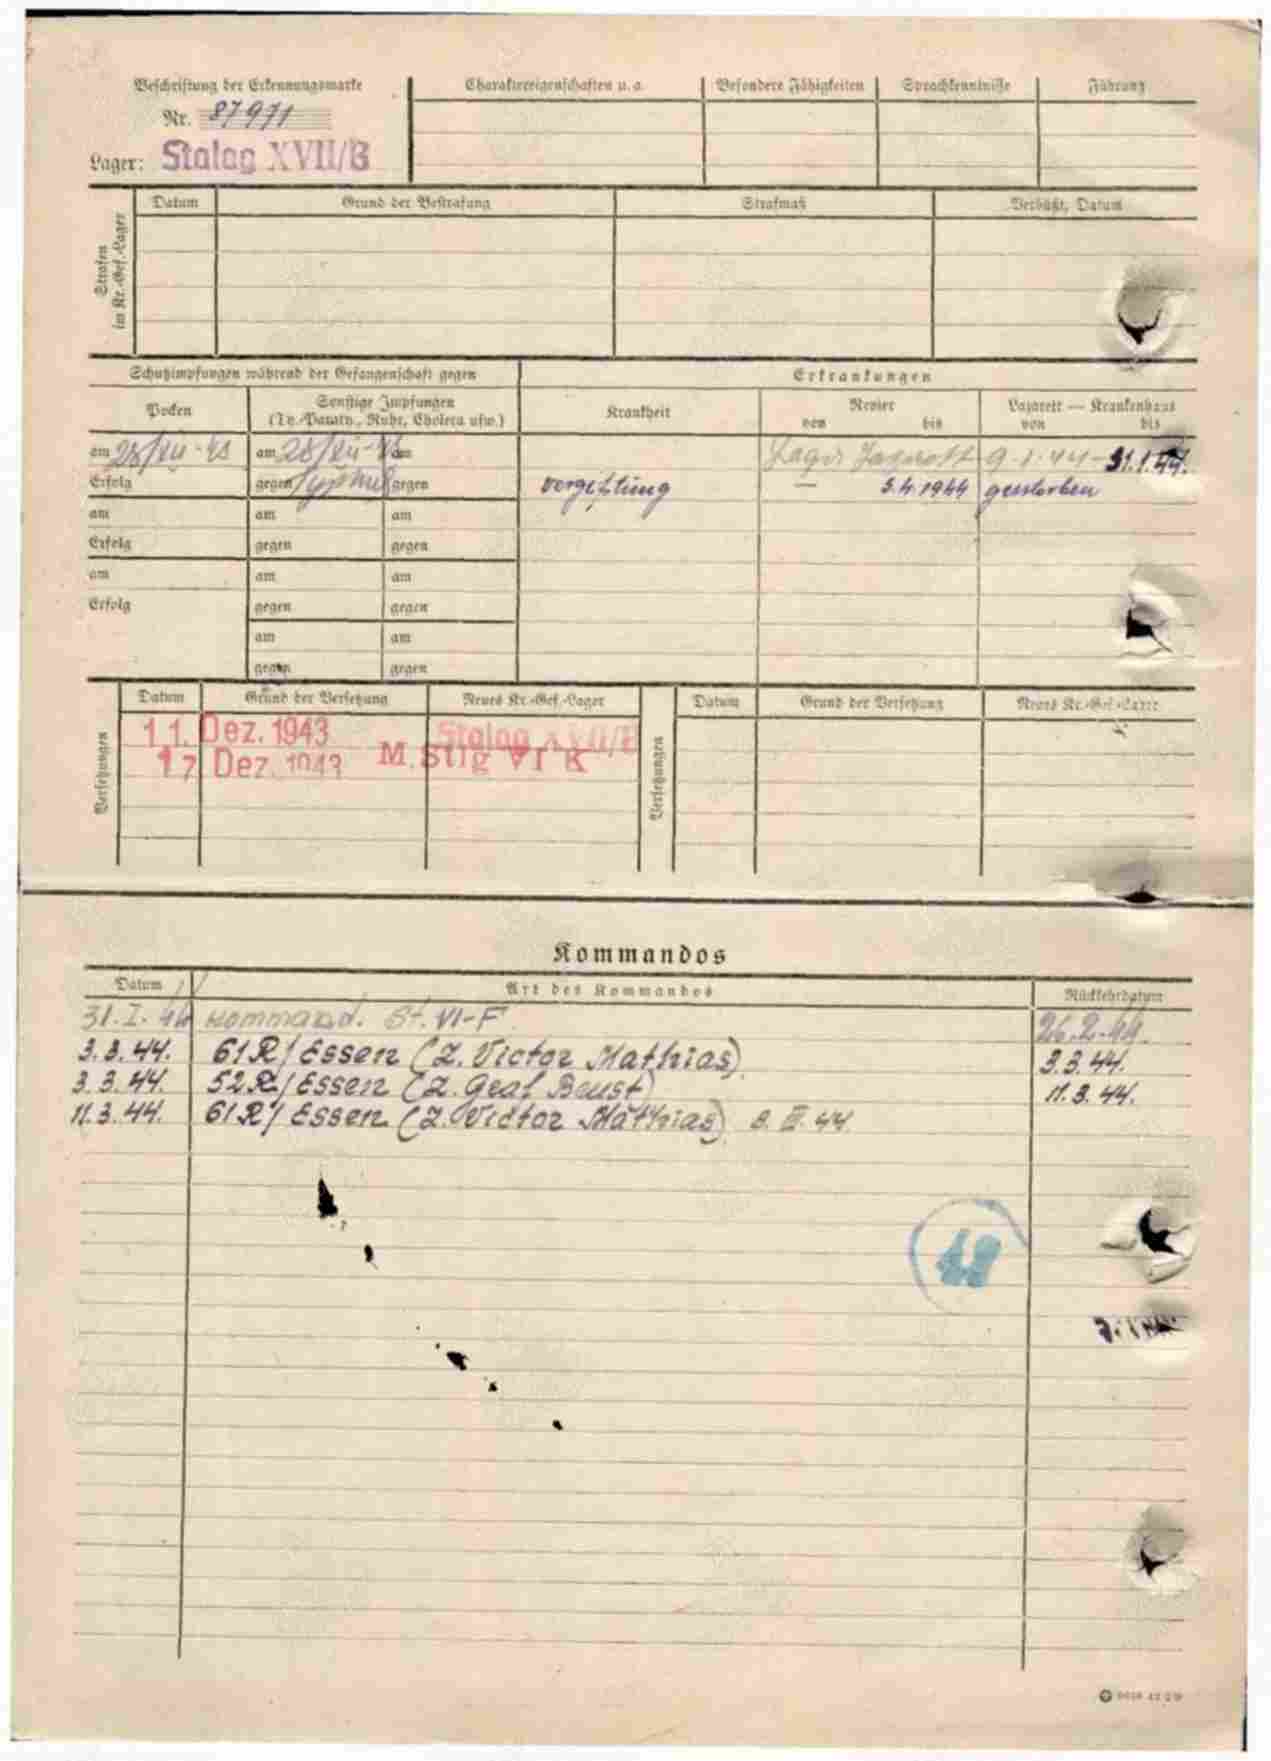 Beschriftung der Erkennungsmarke
Nr. 87971
Lager: Stalag XVII/B
Charaktereigenschaften u. a. Besondere Fähigkeiten Sprachkenntnisse Führung
Strafen im Kr.-Gef.-Lager
Datum Grund der Bestrafung Strafmaß Verbüßt, Datum
Schutzimpfungen während der Gefangenschaft gegen Erkrankungen
Pocken Sonstige Impfungen (Ty.-Paraty., Ruhr, Cholera usw.) Krankheit Revier von bis Lazarett — Krankenhaus von bis
am 28/XII-43 am 28/XII-43 am Lager 9.1.44 - 31.1.44.
Erfolg gegen Typhus gegen vergiftung — 3.4.1944 gesstorben
am am am
Erfolg gegen gegen
am am am
Erfolg gegen gegen
am am
gegen gegen
Versetzungen
Datum Grund der Versetzung Neues Kr.-Gef.-Lager
11. Dez. 1943 Stalag XVII/B
17. Dez. 1943 M. Stlg VI K
Versetzungen
Datum Grund der Versetzung Neues Kr.-Gef.-Lager
Kommandos
Datum Art des Kommandos Rückkehrdatum
31.I.44 Kommand. St. VI-F 26.2.44.
3.3.44. 61 R/ Essen (Z. Victor Mathias) 3.3.44.
3.3.44. 52 R/ Essen (Z. Graf Beust) 11.3.44.
11.3.44. 61 R/ Essen (Z. Victor Mathias) 8.III.44